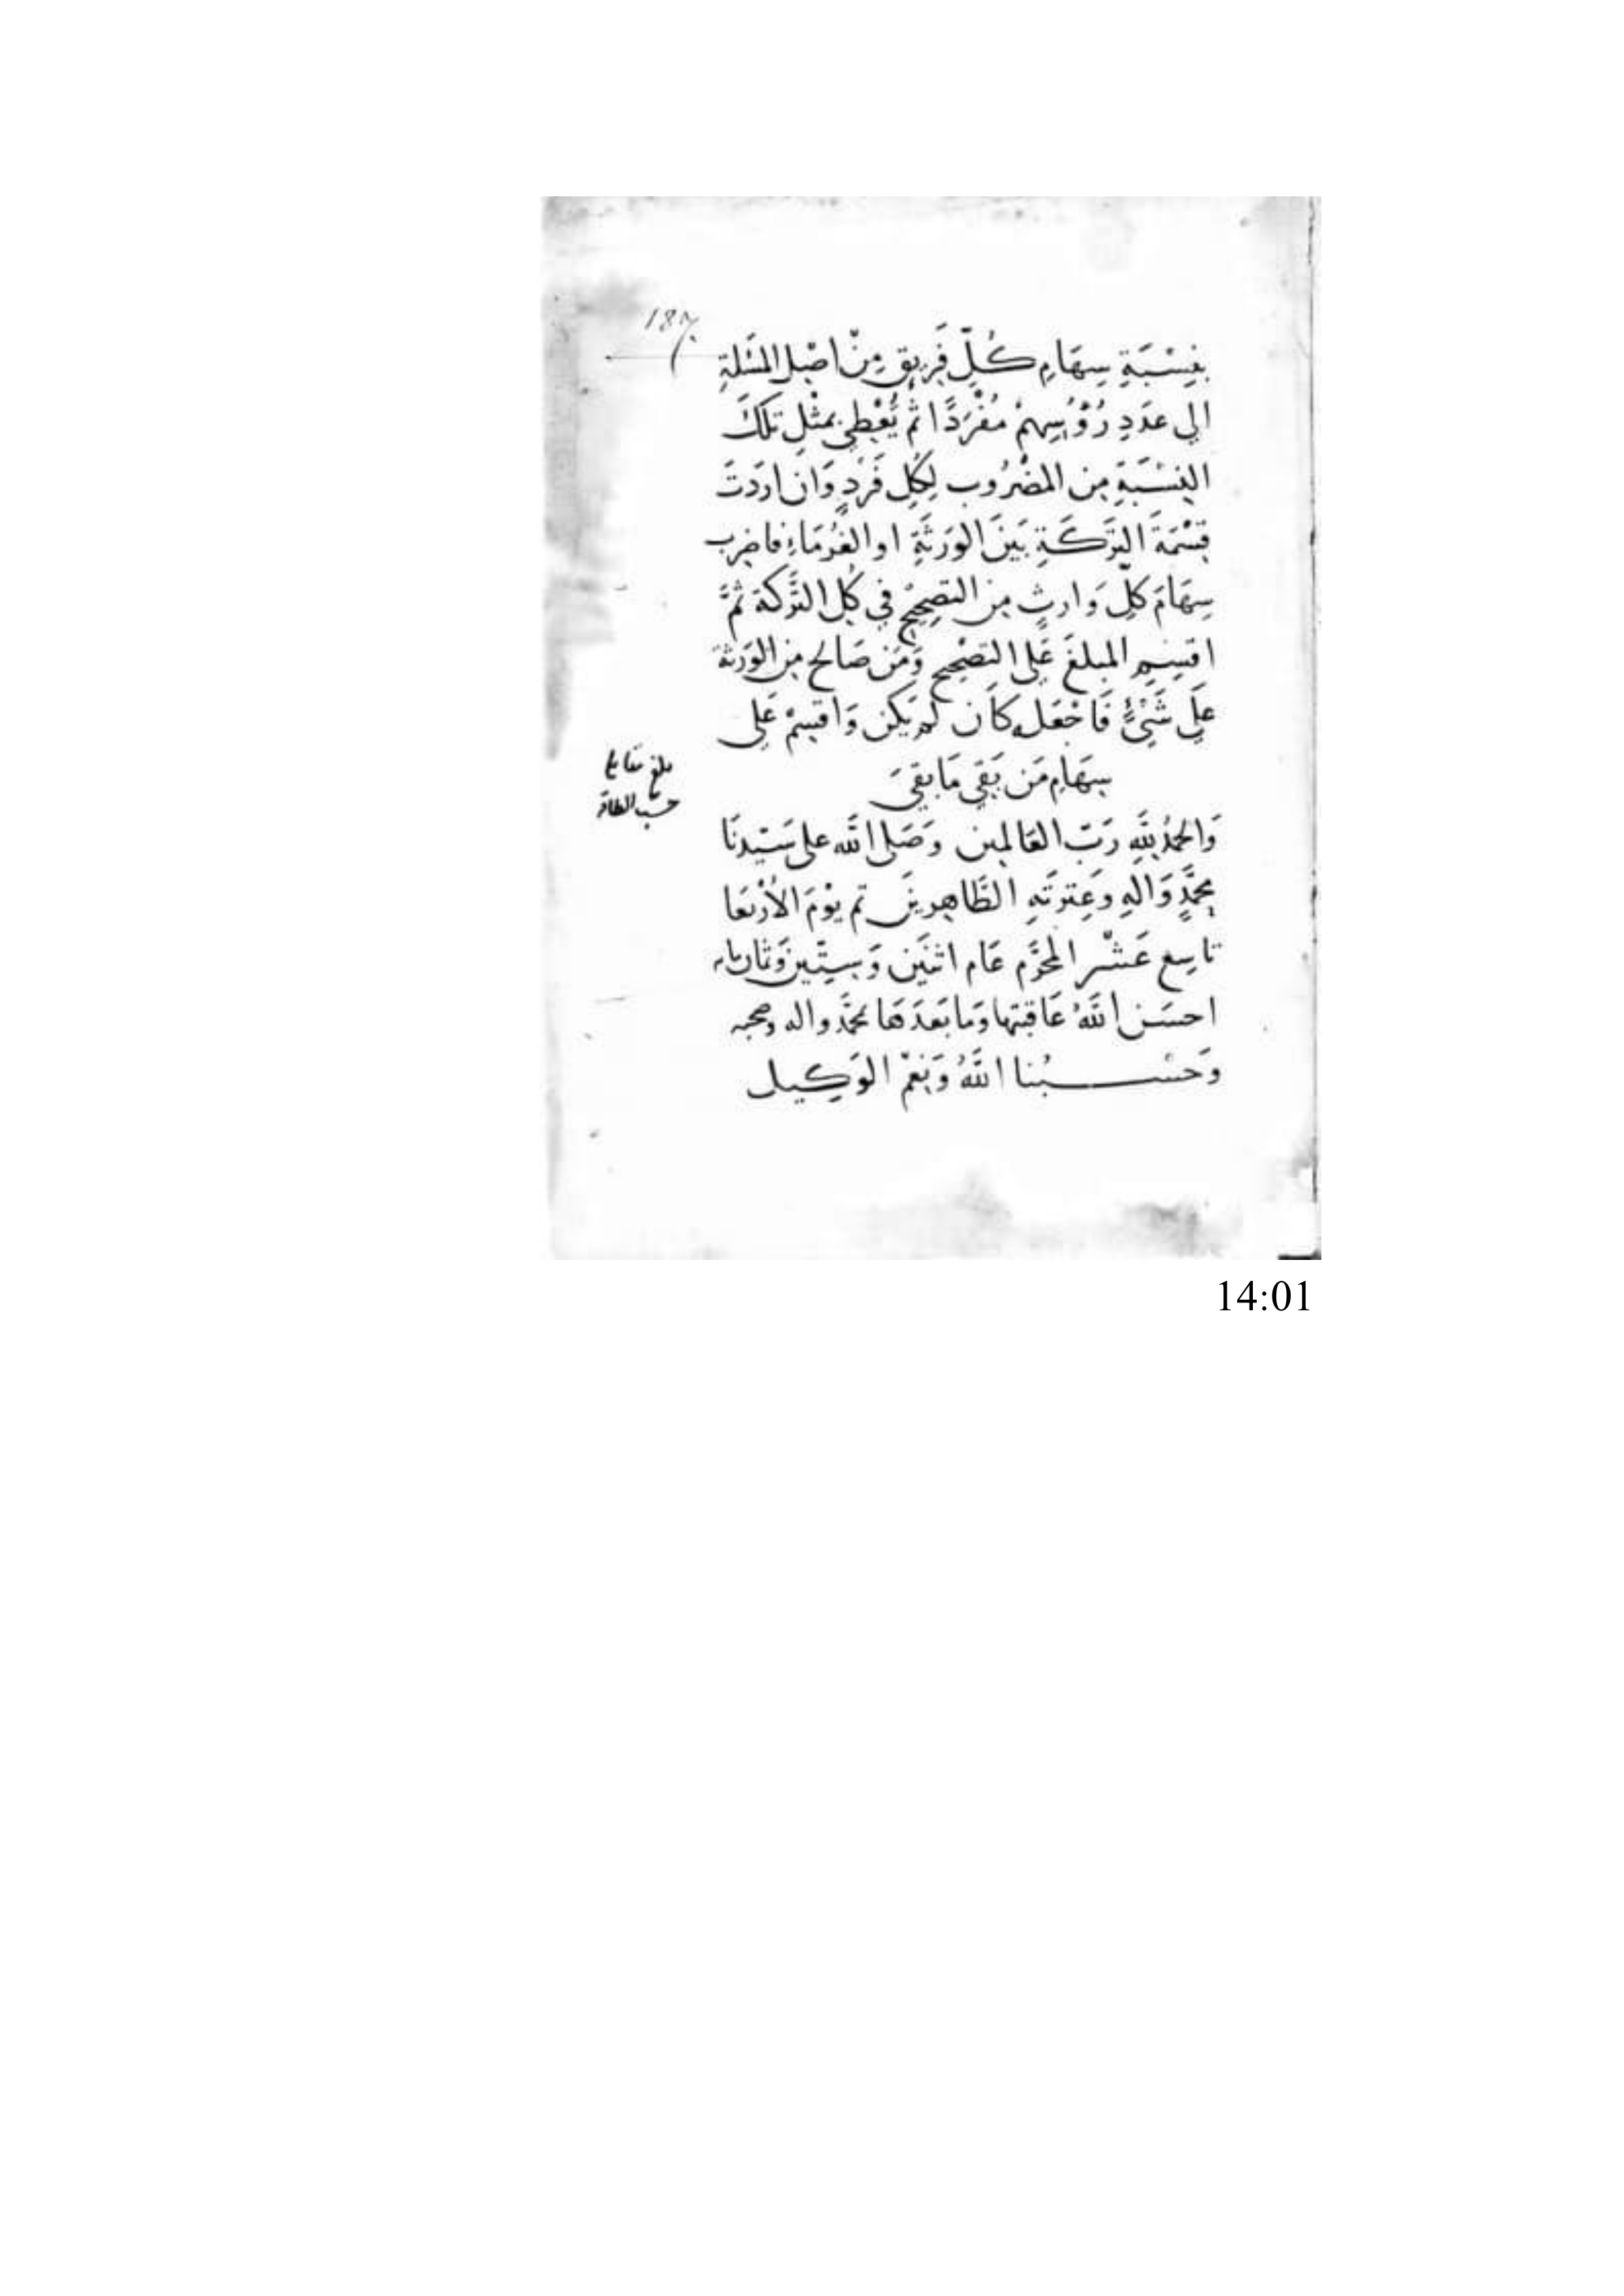 187
بنِسْبَةِ سِهَامِ كُلِّ فَرِيقٍ مِنْ اصْلِ المَسْئَلَةِ
الى عَدَدِ رُؤُسِهِمْ مُفْرَدًا ثم يُعْطِى بمثْلِ تلكَ
النِسْبَةِ مِن المضْرُوب لِكُلِ فَردٍ وَان اردَتَ
قِسْمَةَ التَرَكَةِ بَيَنَ الوَرَثَةِ او الغُرَمَاءِ فاضرب
سِهَامَ كلِّ وَارِثٍ مِن التصحِيْحِ في كُلِ التَّرَكة ثمَّ
اقسِمِ المبلغَ عَلى التصْحِيحِ وَمَن صَالح مِن الوَرَثة
عَلى شَيْءٍ فَاجْعَله كاَن لم يَكن وَاقسِمْ عَلى
سِهَامِ مَن بَقَى مَا بقىَ
بلغ مقابلة
حسب الطاقة
وَالحمْدُ للَّهِ رَبّ العَالمين وَصَلى اللَّه على سَيّدِنَا
محمَّدٍ وَالهِ وعَترتَهِ الطَّاهِرينَ تم يوْمَ الأرْبَعَا
تاسِع عَشْر المحرَّم عَام اثنَين وَسِتّينَ وَثمان مايه
احسَن اللَّهُ عَاقبتها وَمَا بَعَدَهَا بمحمَّد واله وصحبه
وَحَسْبُنا اللَّهُ وَنِعْمَ الوَكِيل
14:01